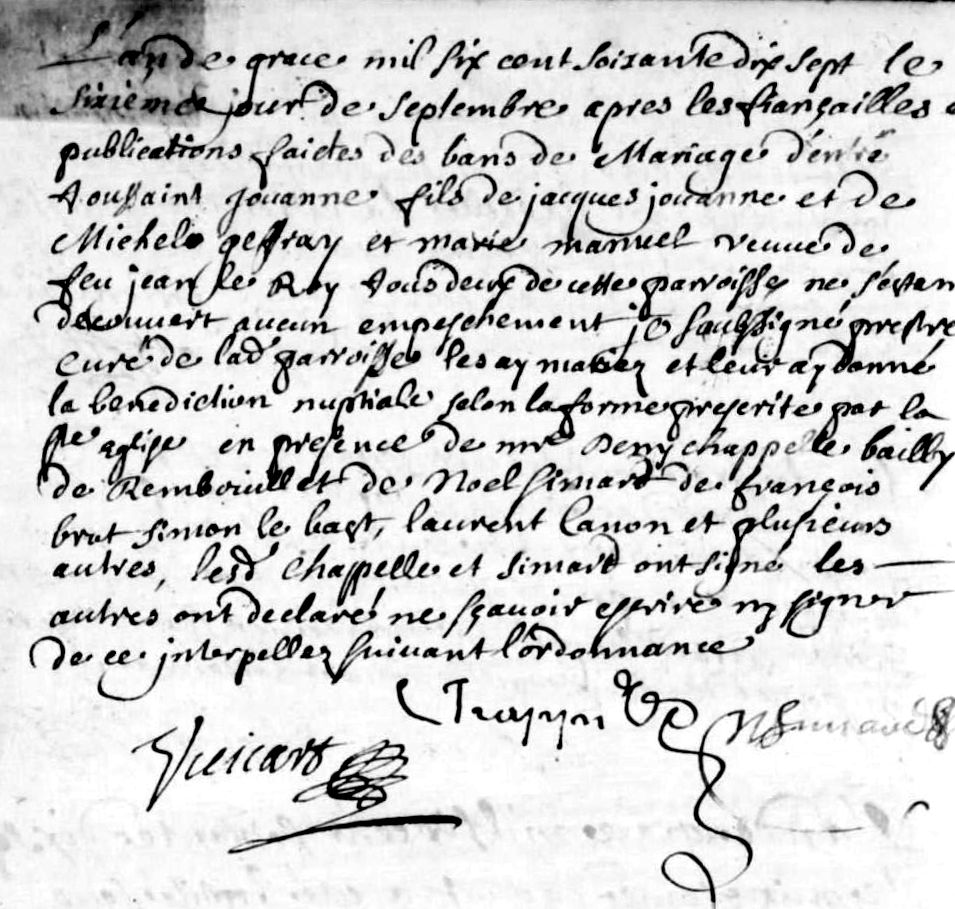 L'an de grace mil six cent soixante dix sept le
sixieme jour de septembre apres les fiançailles
publications faictes des bans de Mariage d'entre
toussaint jouanne fils de jacques jouanne et de
Michele geffray et marie manuel veuve de
feu jean le Roy tous deux de cette parroisse ne s'estan
decouvert aucun empeschement je soubsigné prestre
Curé de lad parroisse les ay mariez et leur ay donné
la benediction nuptiale selon la forme prescrite par la
ste eglise en presence de mre Deny chappelle bailly
de Rembouillet de Noel simard de françois
brut simon le bast, laurent Canon et plusieurs
autres, lesd Chappelle et simard ont signé les
autres ont declaré ne sçavoir escrire ny signer
de ce interpellez suivant l'ordonnance